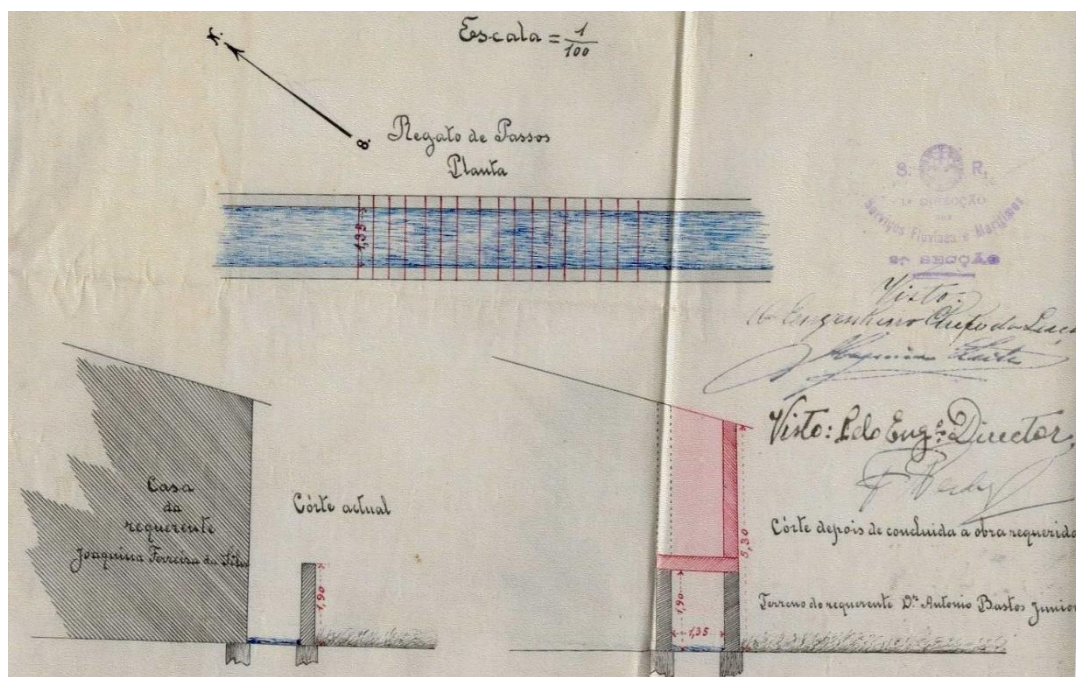 Escala = 1/100
N.
S.
Regato de Passos
Planta
1,35
S. R.
1ª DIRECÇÃO
DOS
Serviços Fluviaes e Maritimos
2ª SECÇÃO
Visto:
O Engenheiro Chefe da
Visto: Pelo Engº Director,
Casa
da
requerente
Joaquina Ferreira da Silva
Córte actual
1,90
1,90
1,35
5,30
Córte depois de concluida a obra requerida
Terreno do requerente Dr. Antonio Bastos Junior